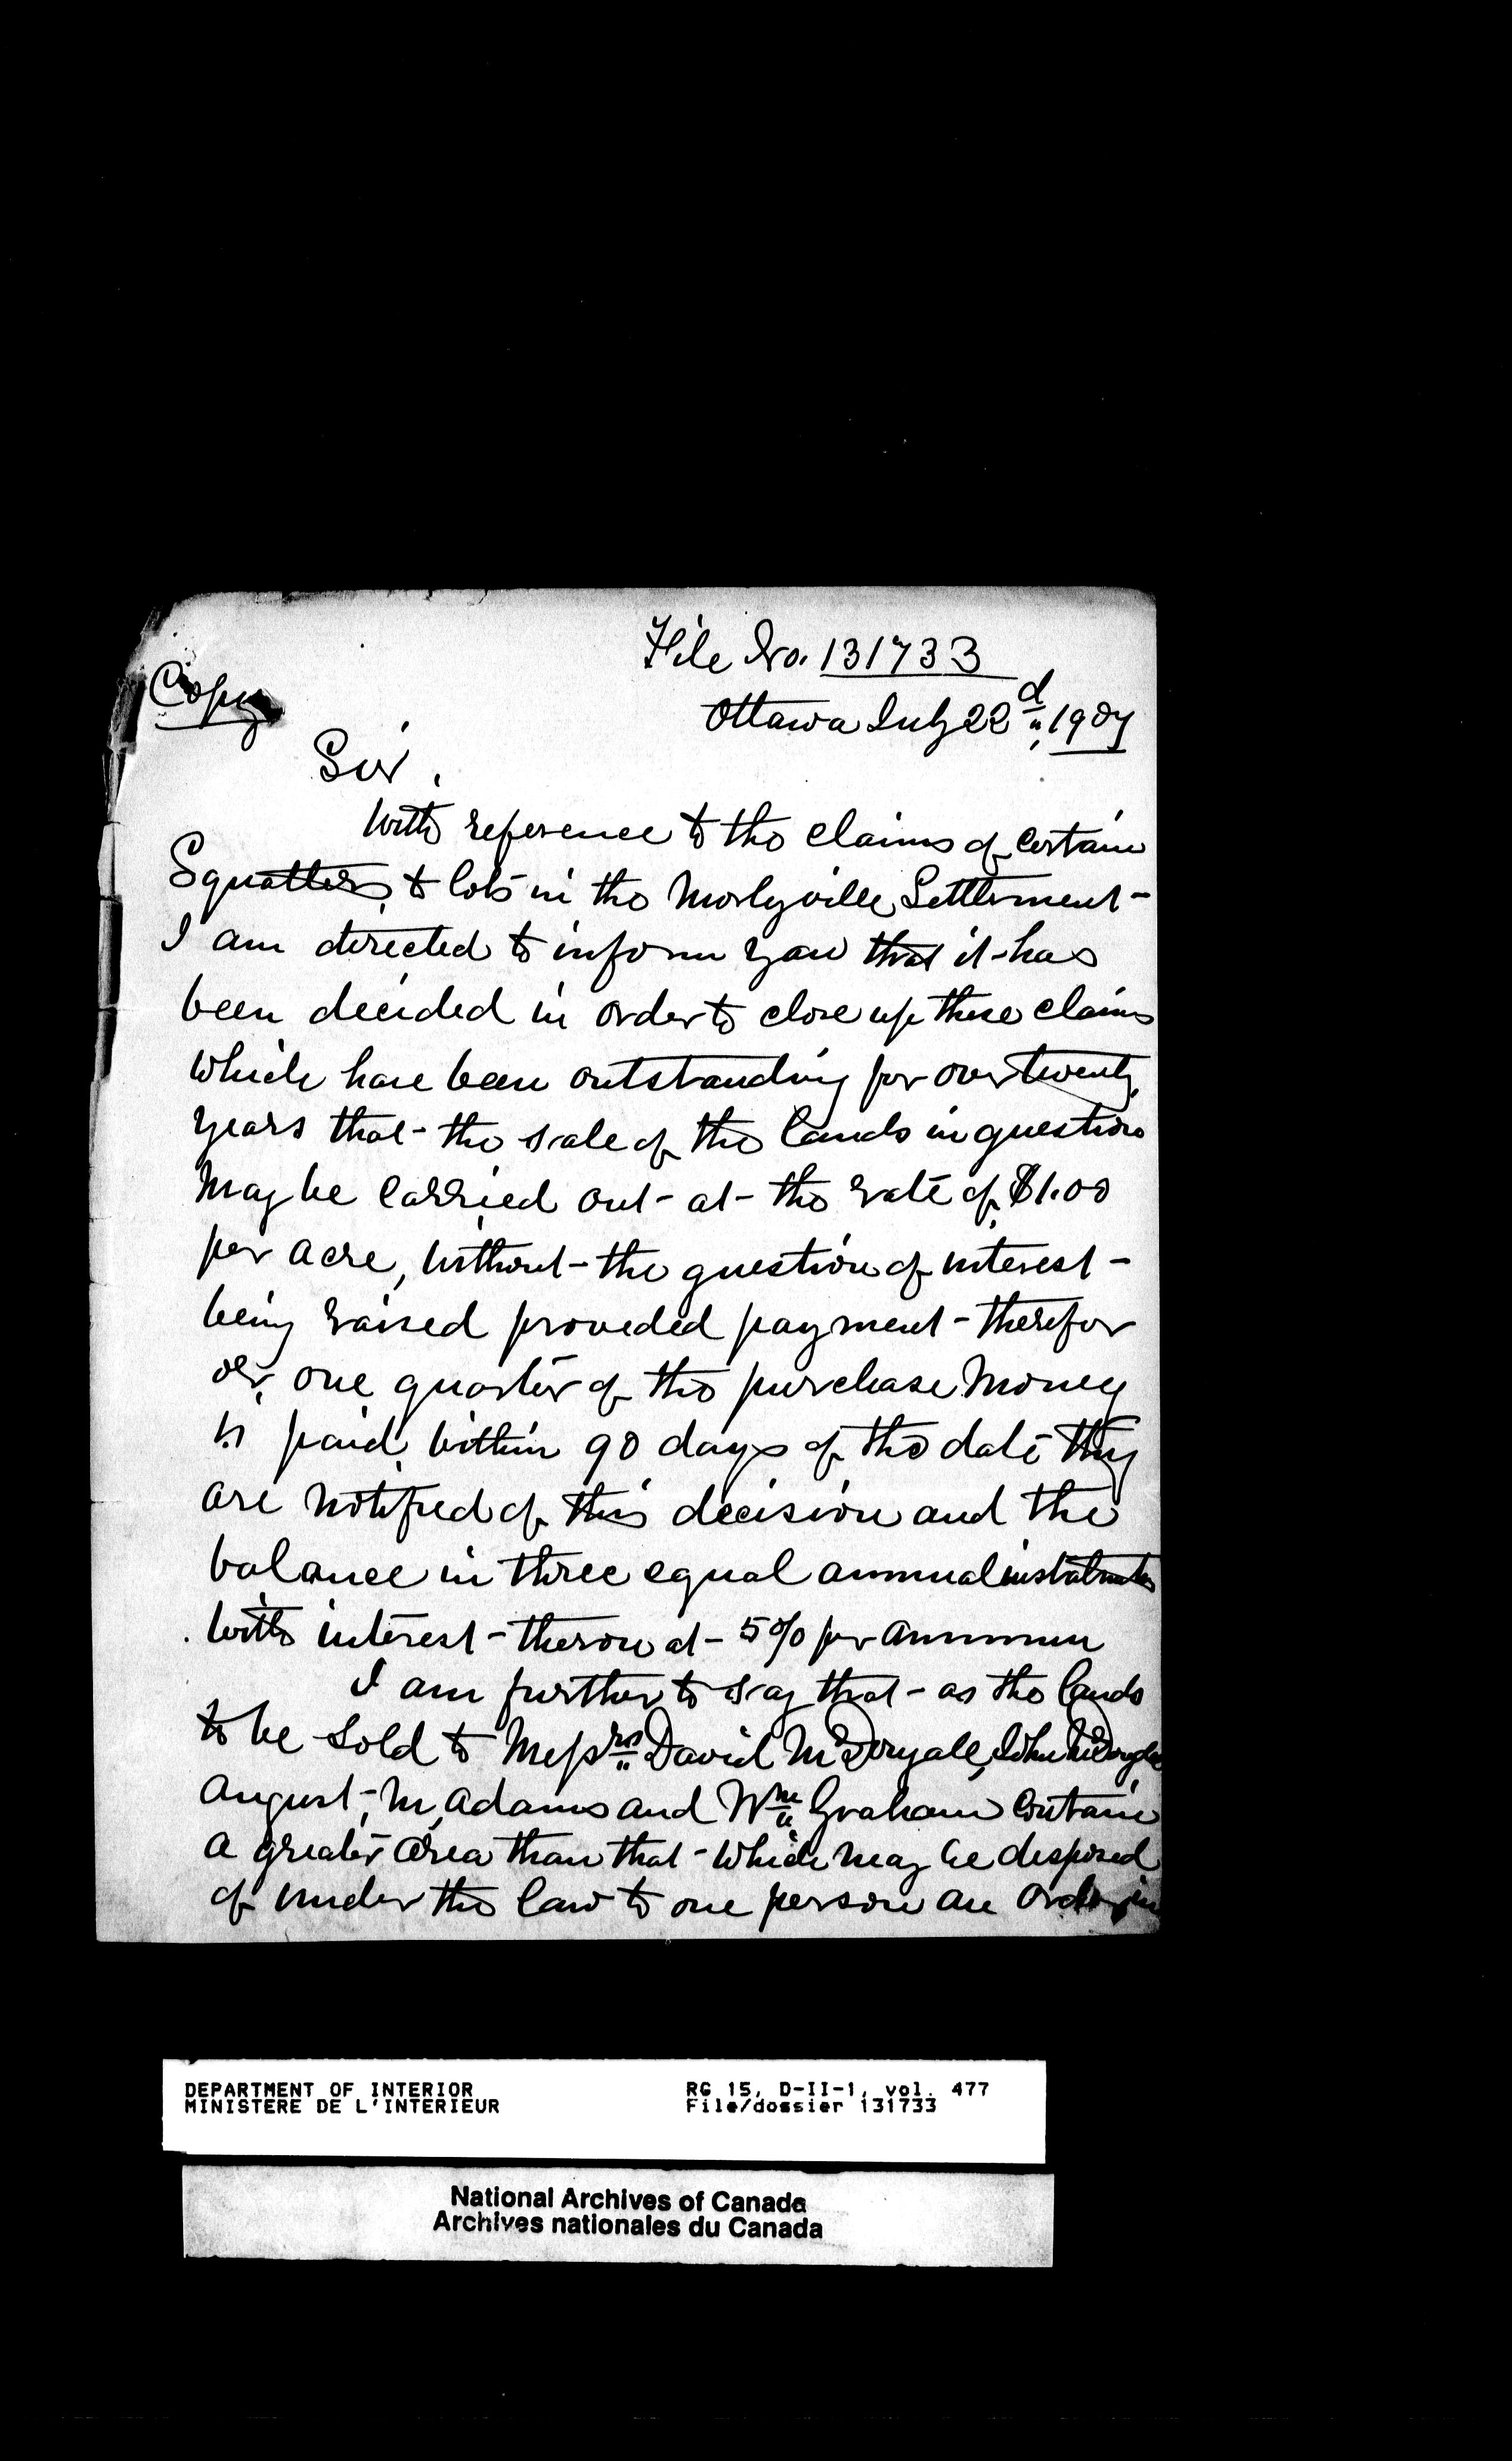 File No. 131733
Copy
Ottawa July 22d, 1907
Sir,
With reference to the claims of certain
Squatters to lots in the Morleyville Settlement -
I am directed to inform you that it has
been decided in order to close up these claims
which have been outstanding for over twenty
years that the sale of the lands in question
may be carried out at the rate of $1.00
per acre, without the question of interest -
being raised provided payment therefor
or one quarter of the purchase money
is paid within 90 days of the date they
are notified of this decision and the
balance in three equal annual instalments
with interest thereon at 5% per annum
I am further to say that as the lands
to be sold to Messrs David McDougall, John McDougall
August, M, Adams and Wm Graham contain
a greater area than that which may be disposed
of under the law to one person an Order in
DEPARTMENT OF INTERIOR RG 15, D-II-1, vol. 477
MINISTERE DE L'INTERIEUR File/dossier 131733
National Archives of Canada
Archives nationales du Canada